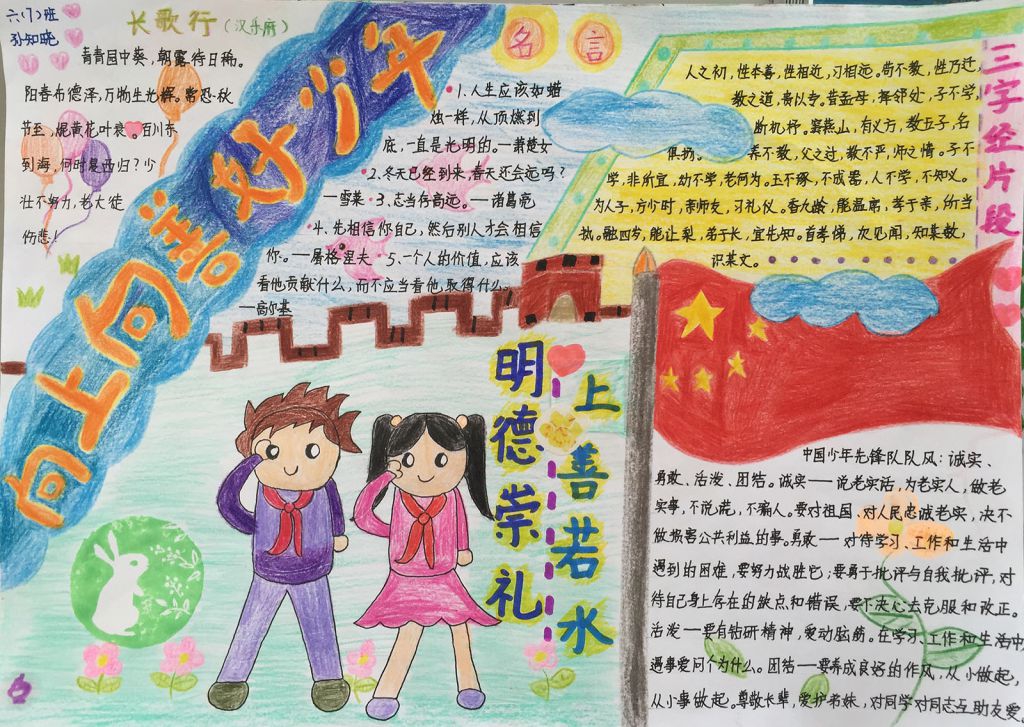 六(7)班
孙知晓
长歌行(汉乐府)
青青园中葵,朝露待日稀。
阳春布德泽,万物生光辉。常恐秋
节至,焜黄花叶衰。百川东
到海,何时复西归?少
壮不努力,老大徒
伤悲!
向上向善好少年
名言
1.人生应该如蜡
烛一样,从顶燃到
底,一直是光明的。—萧楚女
2.冬天已经到来,春天还会远吗?
—雪莱·3.志当存高远。—诸葛亮
4.先相信你自己,然后别人才会相信
你。—屠格涅夫·5.一个人的价值,应该
看他贡献什么,而不应当看他取得什么。
—高尔基
三字经片段
人之初,性本善,性相近,习相远。苟不教,性乃迁,
教之道,贵以专。昔孟母,择邻处,子不学,
断机杼。窦燕山,有义方,教五子,名
俱扬。养不教,父之过,教不严,师之惰。子不
学,非所宜,幼不学,老何为。玉不琢,不成器,人不学,不知义。
为人子,方少时,亲师友,习礼仪。香九龄,能温席,孝于亲,所当
执。融四岁,能让梨,弟于长,宜先知。首孝悌,次见闻,知某数,
识某文。
明德崇礼
上善若水
中国少年先锋队队风:诚实、
勇敢、活泼、团结。诚实——说老实话,为老实人,做老
实事,不说谎,不骗人。要对祖国、对人民忠诚老实,决不
做损害公共利益的事。勇敢——对待学习、工作和生活中
遇到的困难,要努力战胜它;要勇于批评与自我批评,对
待自己身上存在的缺点和错误,要下决心去克服和改正。
活泼——要有钻研精神,爱动脑筋。在学习、工作和生活中
遇事爱问个为什么。团结——要养成良好的作风,从小做起,
从小事做起。尊敬长辈,爱护弟妹,对同学对同志互助友爱